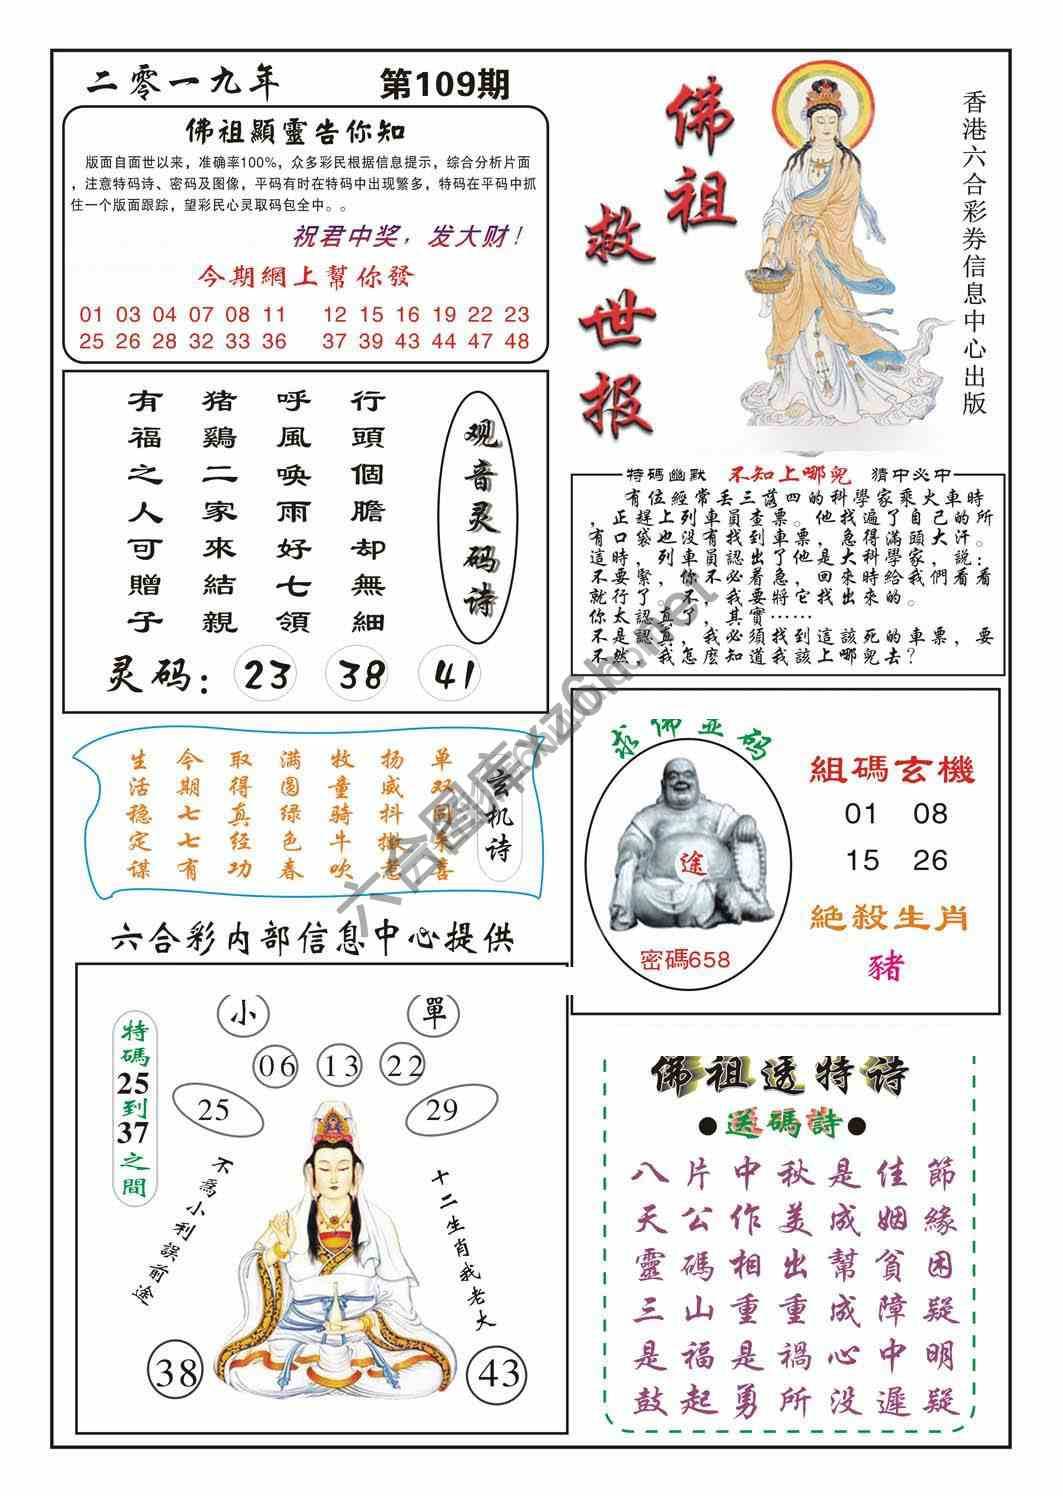 二零一九年 第109期
佛祖顯靈告你知
版面自面世以来，准确率100%，众多彩民根据信息提示，综合分析片面
，注意特码诗、密码及图像，平码有时在特码中出现繁多，特码在平码中抓
住一个版面跟踪，望彩民心灵取码包全中。。
祝君中奖，发大财！
今期網上幫你發
01 03 04 07 08 11 12 15 16 19 22 23
25 26 28 32 33 36 37 39 43 44 47 48
佛祖
救世报
香港六合彩券信息中心出版
观音灵码诗
行頭個膽却無細
呼風喚雨好七領
猪鷄二家來結親
有福之人可贈子
灵码：23 38 41
特碼幽默 不知上哪兒 猜中必中
有位經常丢三落四的科學家乘火車時
，正趕上列車員查票。他找遍了自己的所
有口袋也没有找到車票，急得滿頭大汗。
這時，列車員認出了他是大科學家，説：
不要緊，你不必着急，回來時給我們看看
就行了。不，我要將它找出來的。
你太認真了，其實……
不是認真，我必須找到這該死的車票，要
不然，我怎麽知道我該上哪兒去？
玄机诗
单双同来喜
扬威抖擞惹
牧童骑牛吹
满圆绿色春
取得真经功
今期七七有
生活稳定谋
求佛显码
途
密碼658
組碼玄機
01 08
15 26
絶殺生肖
豬
六合彩内部信息中心提供
特碼25到37之間
小 單
06 13 22
25 29
不爲小利誤前途
十二生肖我老大
38 43
佛祖透特诗
●送碼詩●
八片中秋是佳節
天公作美成姻緣
靈碼相出幫貧困
三山重重成障疑
是福是禍心中明
鼓起勇所没遲疑